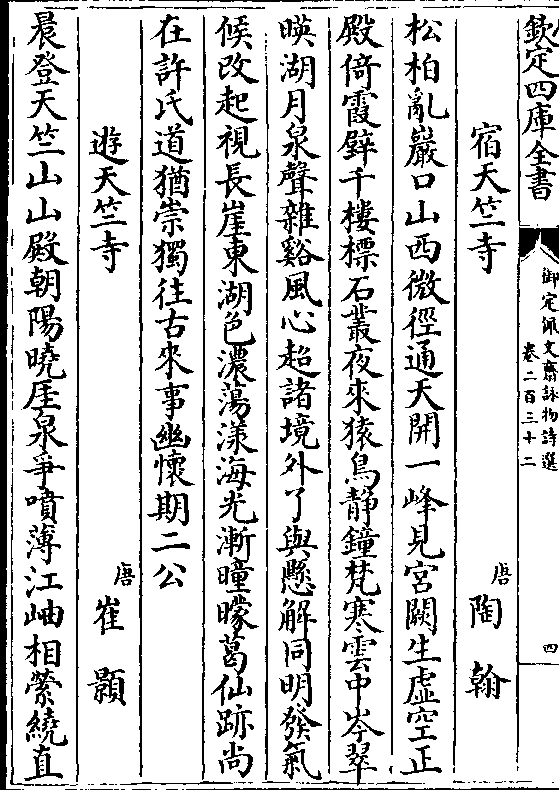 欽定四庫全書
御定佩文齋詠物詩選
卷二百三十二
四
宿天竺寺
唐陶翰
松柏亂巖口山西微徑通天開一峰見宮闕生虛空正
殿倚霞壁千樓標石叢夜來猿鳥静鐘梵寒雲中岑翠
映湖月泉聲雜谿風心超諸境外了與懸解同明發氣
候改起視長崖東湖色濃蕩漾海光漸曈曚葛仙跡尚
在許氏道猶崇獨往古來事幽懷期二公
遊天竺寺
唐崔顥
晨登天竺山山殿朝陽曉厓泉爭噴薄江岫相縈繞直